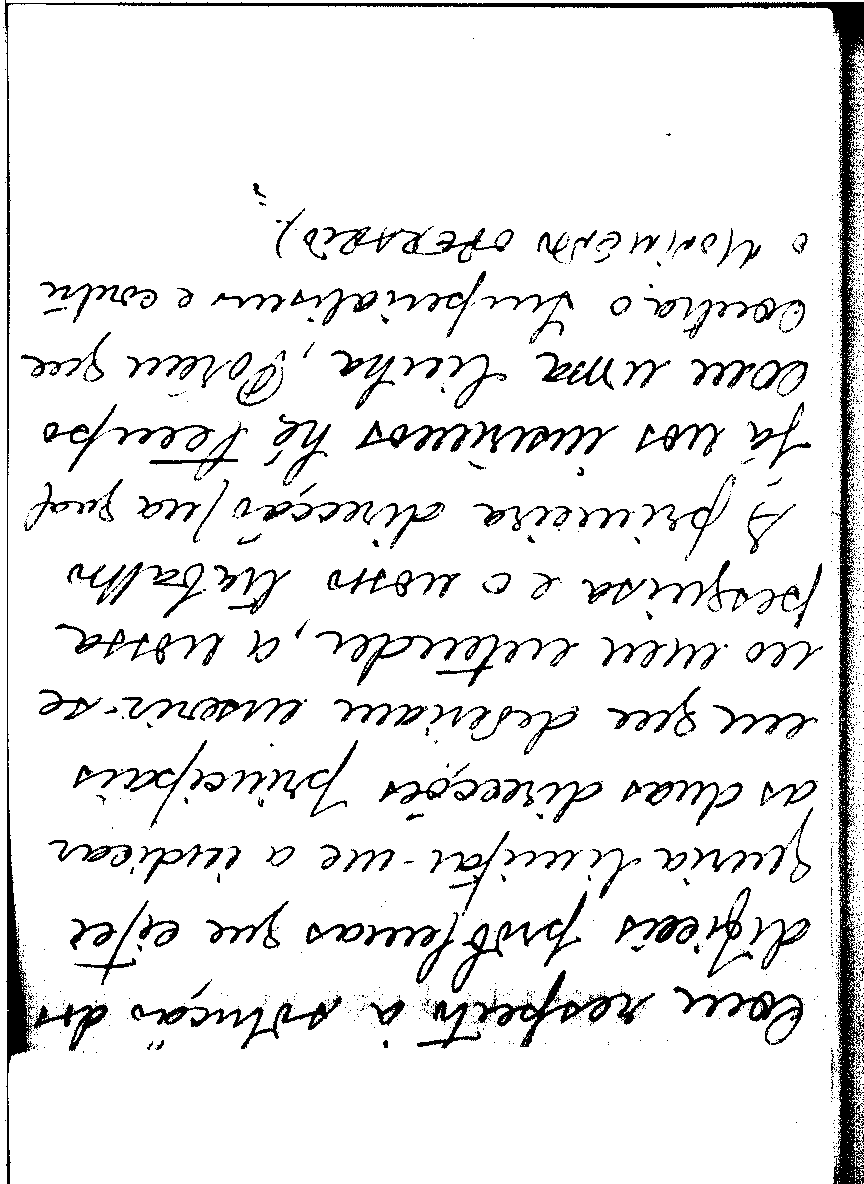 Com respeito à solução dos
dificeis problemas que citei
queria limitar-me a indicar
as duas direcções principais
em que deveriam inserir-se
no meu entender, a nossa
pesquisa e o nosso trabalho
A primeira direcção (na qual
já nos inserimos há tempo
com uma linha, Porém que
contra o Imperialismo e contra
o MOVIMENTO OPERARIO).